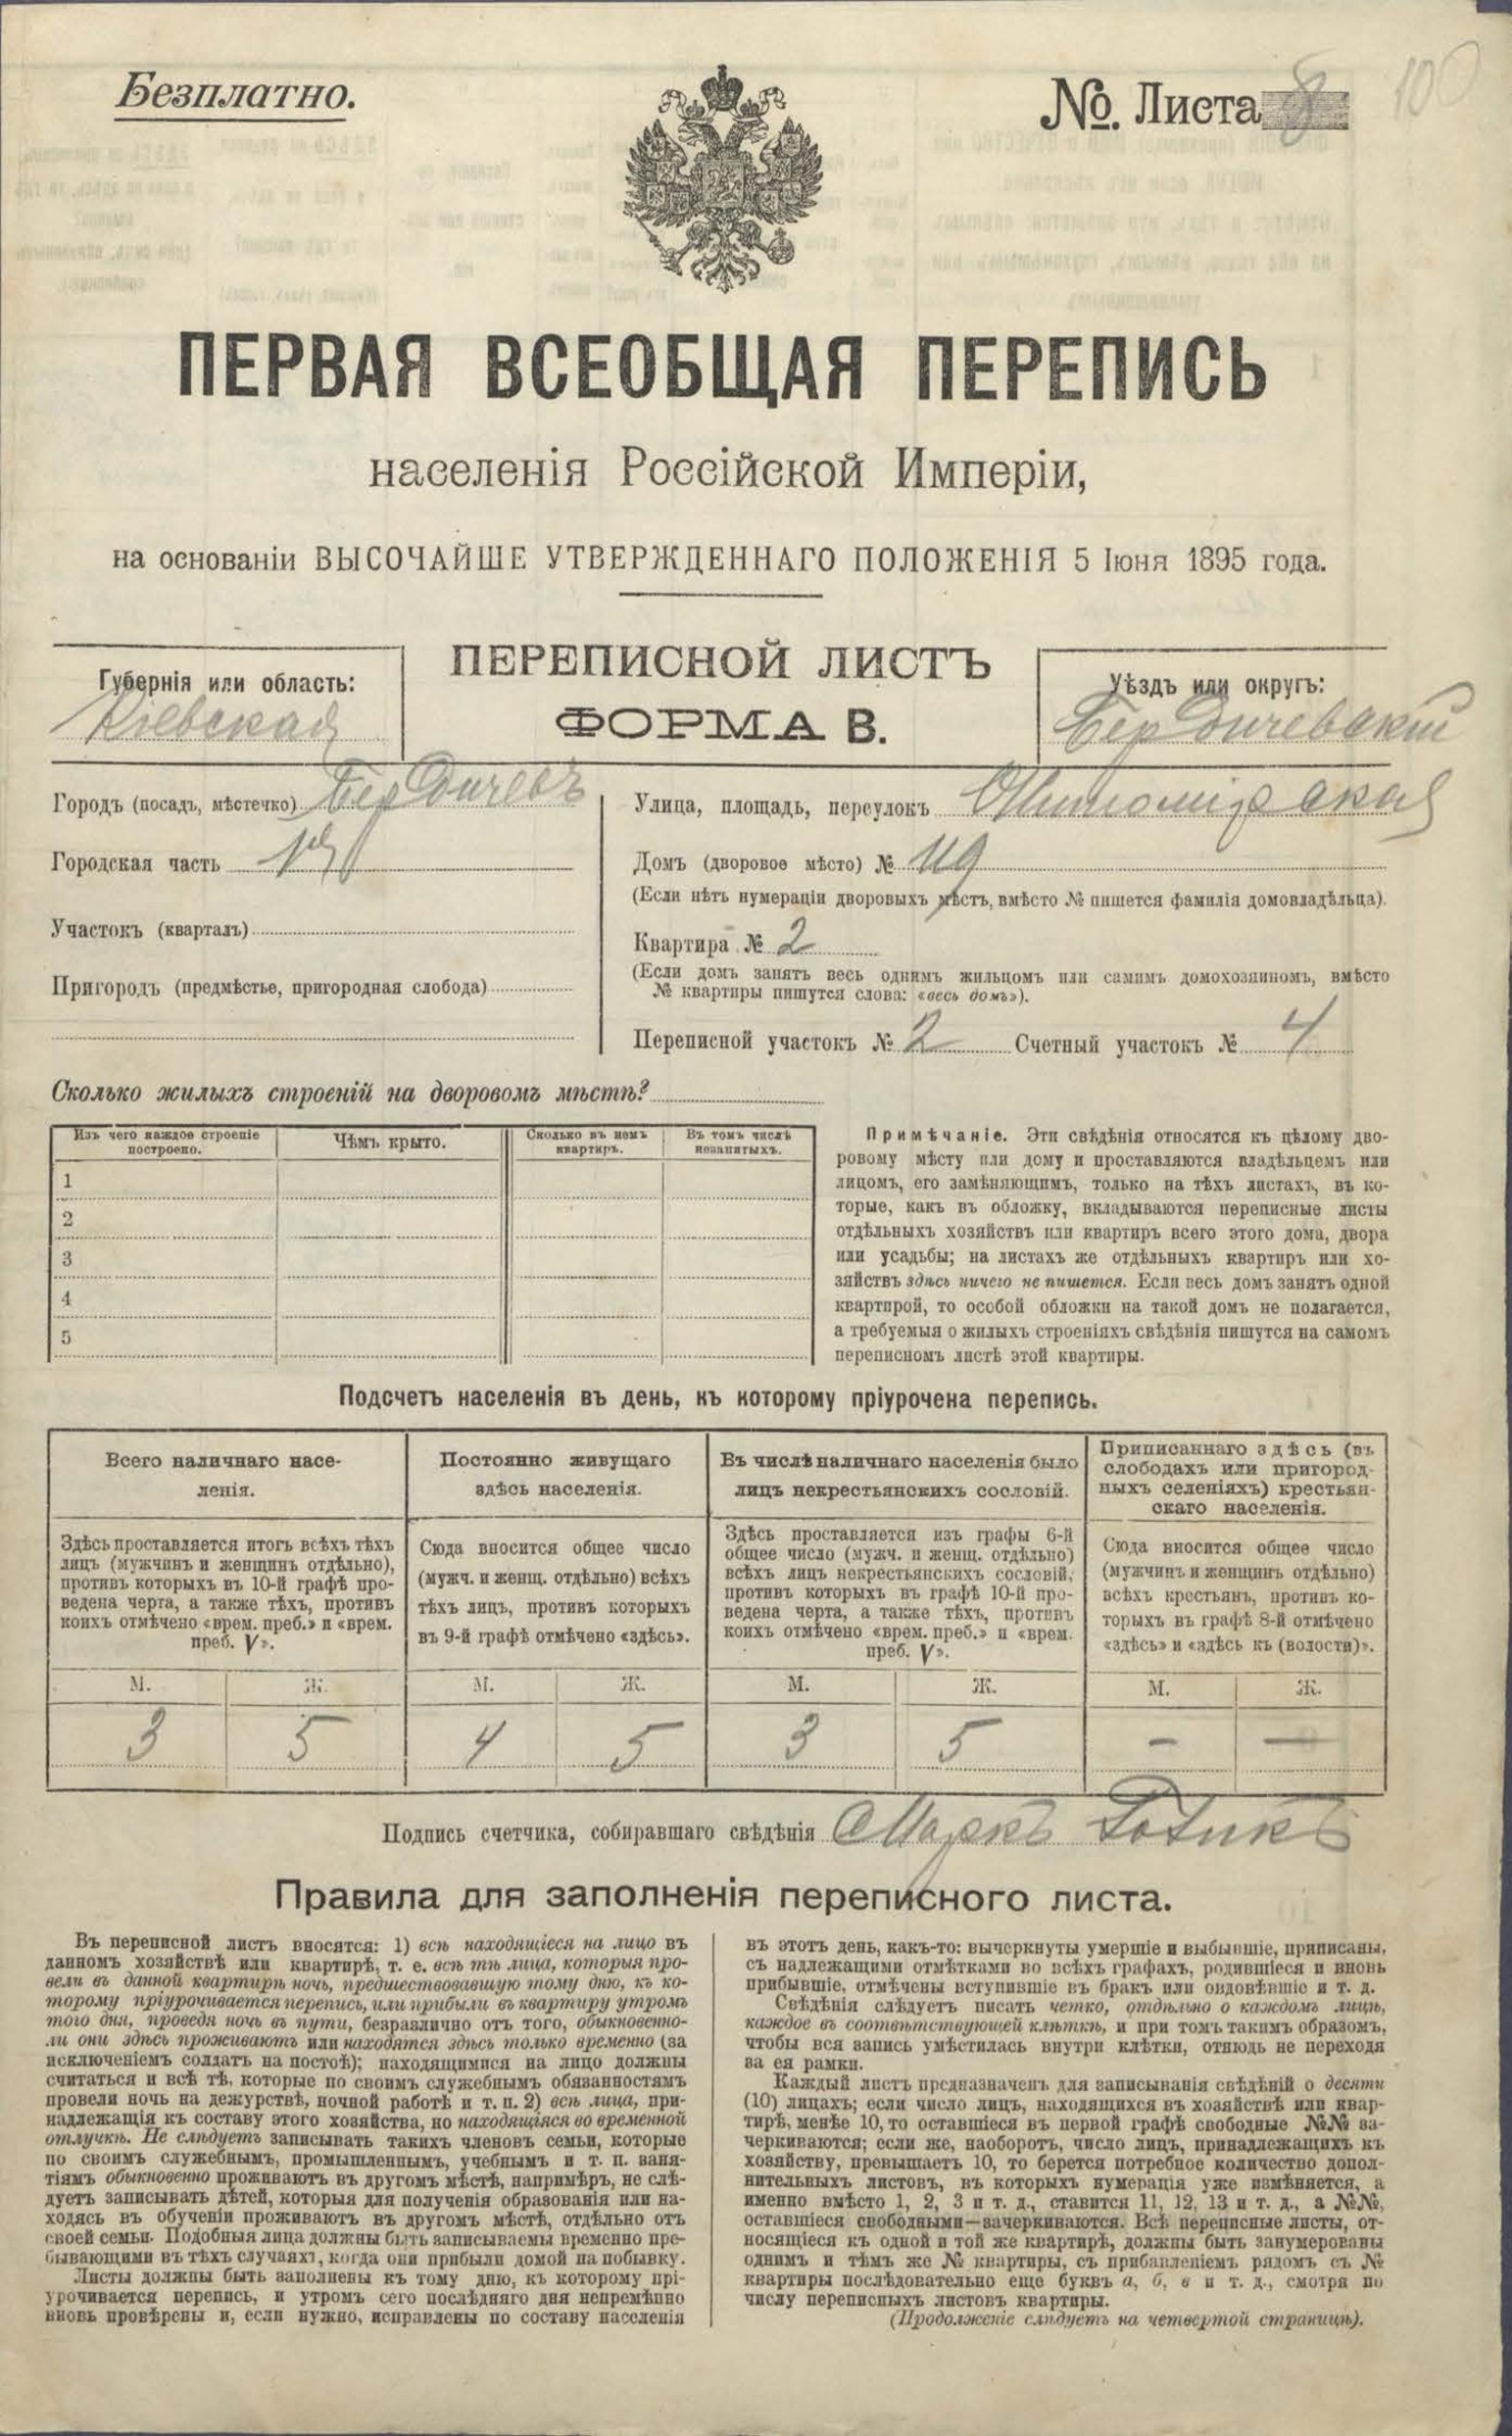 Безплатно.
№. Листа 8
100
ПЕРВАЯ ВСЕОБЩАЯ ПЕРЕПИСЬ
населенія Россійской Имперіи,
на основаніи ВЫСОЧАЙШЕ УТВЕРЖДЕННАГО ПОЛОЖЕНІЯ 5 Іюня 1895 года.
ПЕРЕПИСНОЙ ЛИСТЪ
ФОРМА В.
Губернія или область:
Кіевская
Уѣздъ или округъ:
Бердичевскій
Городъ (посадъ, мѣстечко) Бердичевъ
Городская часть 1я
Участокъ (кварталъ)
Пригородъ (предмѣстье, пригородная слобода)
Улица, площадь, переулокъ Житомірская
Домъ (дворовое мѣсто) № 119
(Если нѣтъ нумераціи дворовыхъ мѣстъ, вмѣсто № пишется фамилія домовладѣльца).
Квартира № 2
(Если домъ занятъ весь однимъ жильцомъ или самимъ домохозяиномъ, вмѣсто
№ квартиры пишутся слова: «весь домъ»).
Переписной участокъ № 2 Счетный участокъ № 4
Сколько жилыхъ строеній на дворовомъ мѣстѣ?
Изъ чего каждое строеніе
построено.
Чѣмъ крыто.
Сколько въ немъ
квартиръ.
Въ томъ числѣ
незанятыхъ.
1
2
3
4
5
Примѣчаніе. Эти свѣдѣнія относятся къ цѣлому дво-
ровому мѣсту или дому и проставляются владѣльцемъ или
лицомъ, его замѣняющимъ, только на тѣхъ листахъ, въ ко-
торые, какъ въ обложку, вкладываются переписные листы
отдѣльныхъ хозяйствъ или квартиръ всего этого дома, двора
или усадьбы; на листахъ же отдѣльныхъ квартиръ или хо-
зяйствъ здѣсь ничего не пишется. Если весь домъ занятъ одной
квартирой, то особой обложки на такой домъ не полагается,
а требуемыя о жилыхъ строеніяхъ свѣдѣнія пишутся на самомъ
переписномъ листѣ этой квартиры.
Подсчетъ населенія въ день, къ которому пріурочена перепись.
Всего наличнаго насе-
ленія.
Постоянно живущаго
здѣсь населенія.
Въ числѣ наличнаго населенія было
лицъ некрестьянскихъ сословій.
Приписаннаго здѣсь (въ
слободахъ или пригород-
ныхъ селеніяхъ) крестьян-
скаго населенія.
Здѣсь проставляется итогъ всѣхъ тѣхъ
лицъ (мужчинъ и женщинъ отдѣльно),
противъ которыхъ въ 10-й графѣ про-
ведена черта, а также тѣхъ, противъ
коихъ отмѣчено «врем. преб.» и «врем.
преб. V».
Сюда вносится общее число
(мужч. и женщ. отдѣльно) всѣхъ
тѣхъ лицъ, противъ которыхъ
въ 9-й графѣ отмѣчено «здѣсь».
Здѣсь проставляется изъ графы 6-й
общее число (мужч. и женщ. отдѣльно)
всѣхъ лицъ некрестьянскихъ сословій,
противъ которыхъ въ графѣ 10-й про-
ведена черта, а также тѣхъ, противъ
коихъ отмѣчено «врем. преб.» и «врем.
преб. V».
Сюда вносится общее число
(мужчинъ и женщинъ отдѣльно)
всѣхъ крестьянъ, противъ ко-
торыхъ въ графѣ 8-й отмѣчено
«здѣсь» и «здѣсь къ (волости)».
М. Ж. М. Ж. М. Ж. М. Ж.
3 5 4 5 3 5 – —
Подпись счетчика, собиравшаго свѣдѣнія Маркъ
Правила для заполненія переписного листа.
Въ переписной листъ вносятся: 1) всѣ находящіеся на лицо въ
данномъ хозяйствѣ или квартирѣ, т. е. всѣ тѣ лица, которыя про-
вели въ данной квартирѣ ночь, предшествовавшую тому дню, къ ко-
торому пріурочивается перепись, или прибыли въ квартиру утромъ
того дня, проведя ночь въ пути, безразлично отъ того, обыкновенно-
ли они здѣсь проживаютъ или находятся здѣсь только временно (за
исключеніемъ солдатъ на постоѣ); находящимися на лицо должны
считаться и всѣ тѣ, которые по своимъ служебнымъ обязанностямъ
провели ночь на дежурствѣ, ночной работѣ и т. п. 2) всѣ лица, при-
надлежащія къ составу этого хозяйства, но находящіяся во временной
отлучкѣ. Не слѣдуетъ записывать такихъ членовъ семьи, которые
по своимъ служебнымъ, промышленнымъ, учебнымъ и т. п. заня-
тіямъ обыкновенно проживаютъ въ другомъ мѣстѣ, напримѣръ, не слѣ-
дуетъ записывать дѣтей, которыя для полученія образованія или на-
ходясь въ обученіи проживаютъ въ другомъ мѣстѣ, отдѣльно отъ
своей семьи. Подобныя лица должны быть записываемы временно пре-
бывающими въ тѣхъ случаяхъ, когда они прибыли домой на побывку.
Листы должны быть заполнены къ тому дню, къ которому прі-
урочивается перепись, и утромъ сего послѣдняго дня непремѣнно
вновь провѣрены и, если нужно, исправлены по составу населенія
въ этотъ день, какъ-то: вычеркнуты умершіе и выбывшіе, приписаны,
съ надлежащими отмѣтками во всѣхъ графахъ, родившіеся и вновь
прибывшіе, отмѣчены вступившіе въ бракъ или овдовѣвшіе и т. д.
Свѣдѣнія слѣдуетъ писать четко, отдѣльно о каждомъ лицѣ,
каждое въ соотвѣтствующей клѣткѣ, и при томъ такимъ образомъ,
чтобы вся запись умѣстилась внутри клѣтки, отнюдь не переходя
за ея рамки.
Каждый листъ предназначенъ для записыванія свѣдѣній о десяти
(10) лицахъ; если число лицъ, находящихся въ хозяйствѣ или квар-
тирѣ, менѣе 10, то оставшіеся въ первой графѣ свободные №№ за-
черкиваются; если же, наоборотъ, число лицъ, принадлежащихъ къ
хозяйству, превышаетъ 10, то берется потребное количество допол-
нительныхъ листовъ, въ которыхъ нумерація уже измѣняется, а
именно вмѣсто 1, 2, 3 и т. д., ставится 11, 12, 13 и т. д., а №№,
оставшіеся свободными—зачеркиваются. Всѣ переписные листы, от-
носящіеся къ одной и той же квартирѣ, должны быть занумерованы
однимъ и тѣмъ же № квартиры, съ прибавленіемъ рядомъ съ №
квартиры послѣдовательно еще буквъ а, б, в и т. д., смотря по
числу переписныхъ листовъ квартиры.
(Продолженіе слѣдуетъ на четвертой страницѣ).